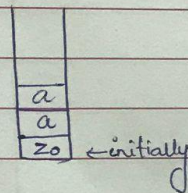 a
a
z0 ← initially